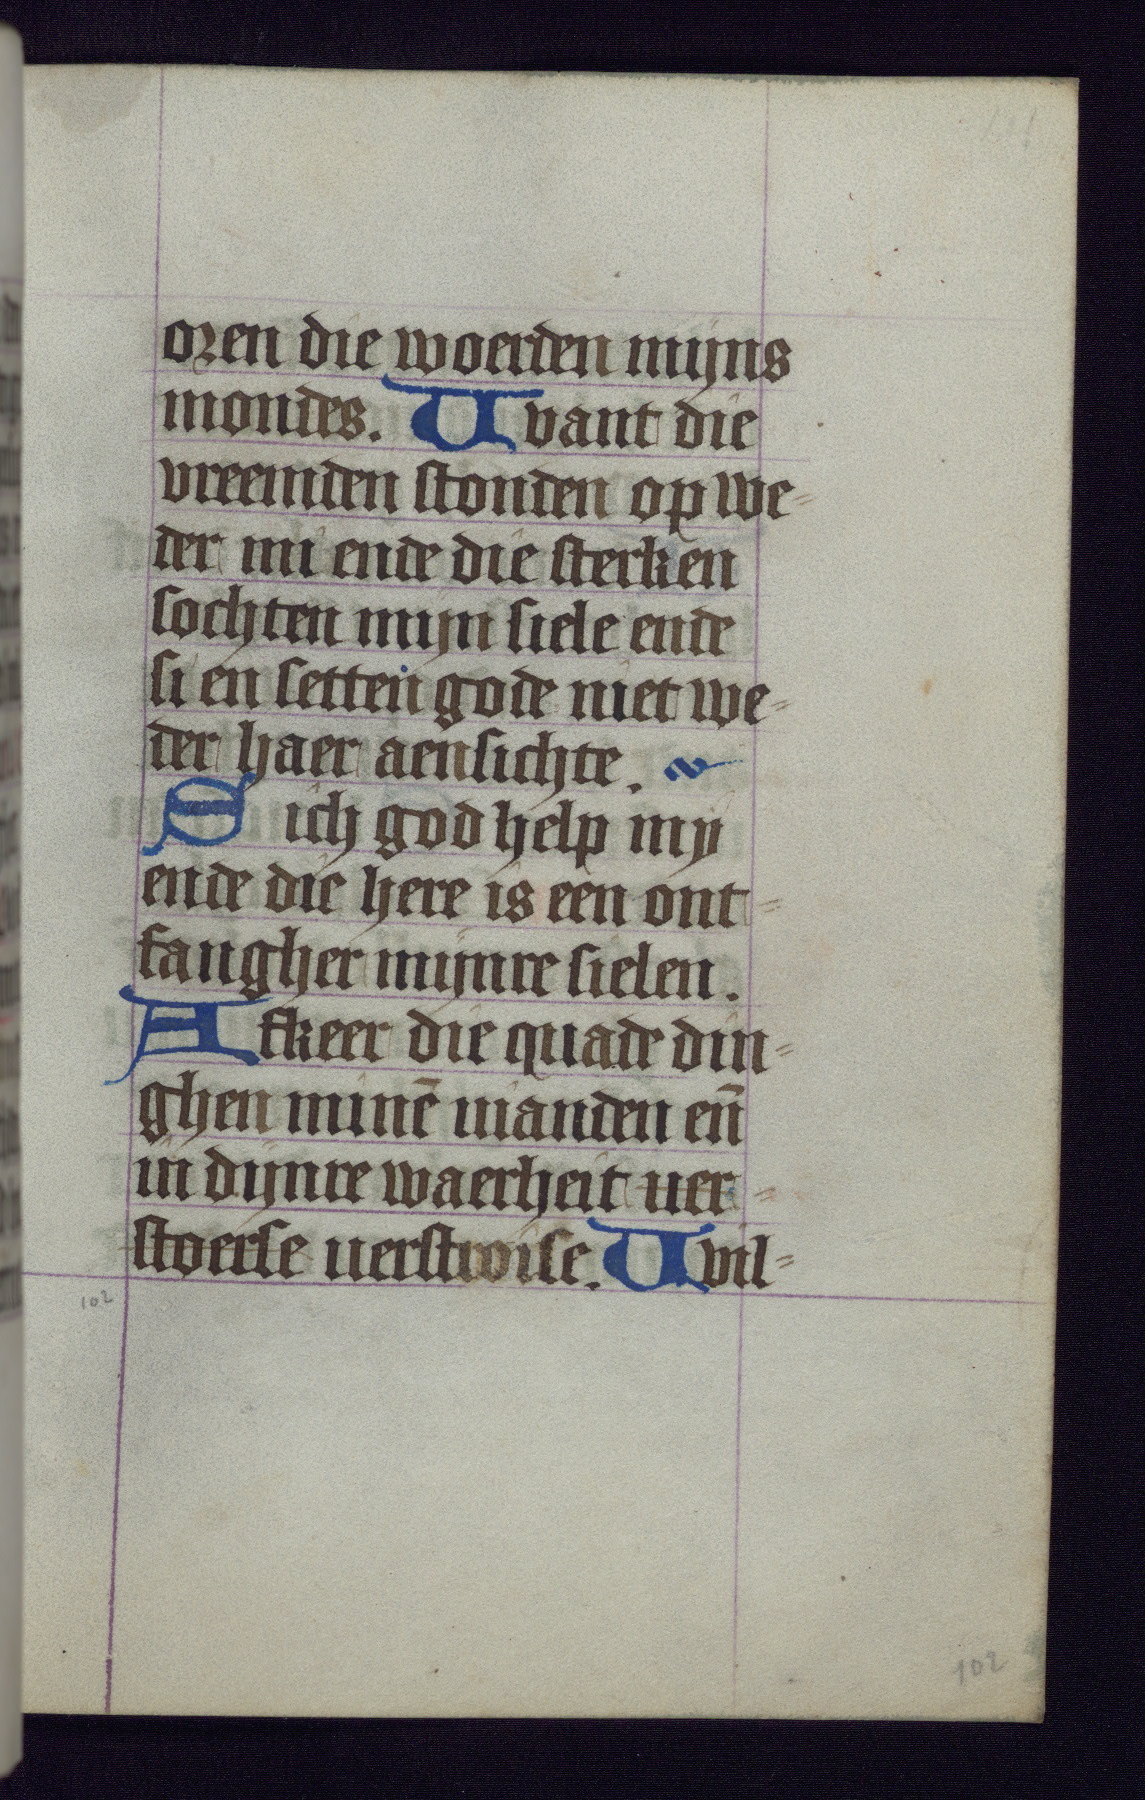 oren die woerden mijns
mondes. Uvant die
vreemden stonden op we=
der mi ende die sterken
sochten mijn siele ende
si en setten gode niet we=
der haer aensichte.
Sich god help my
ende die here is een ont=
faugher mijnre sielen.
Afkeer die quade din=
ghen minē uianden en̄
in dijnre waerheit uer=
stoerse uerstroise. Uvil=
102
102